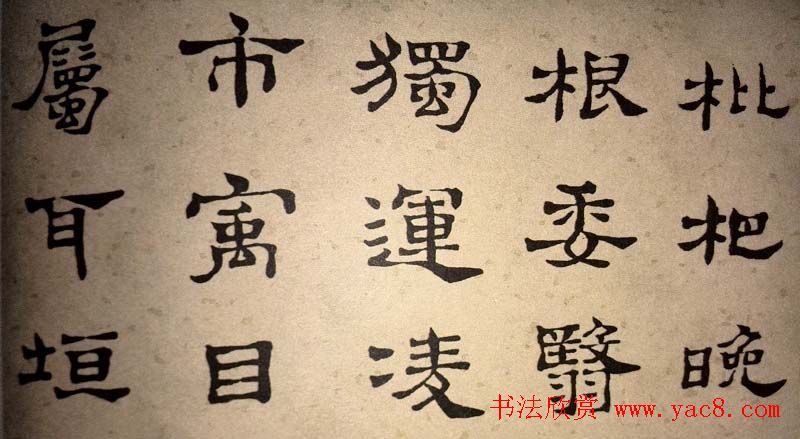 枇杷晚
根委翳
獨運凌
市寓目
屬耳垣
书法欣赏 www.yac8.com